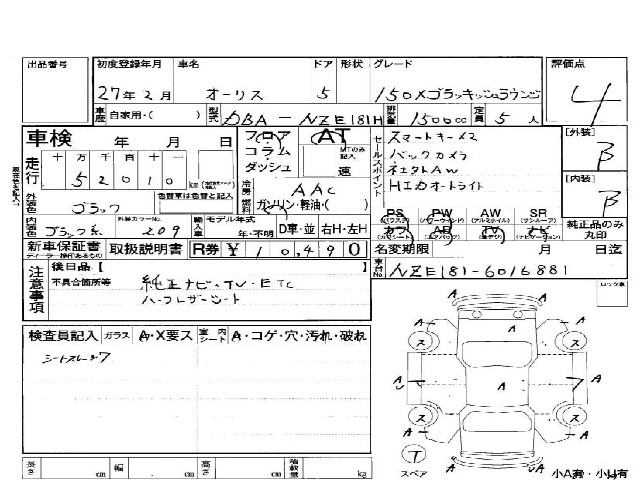 出品番号 初度登録年月 車名 ドア 形状 グレード 評価点
27年2月 オーリス 5 150Xブラッキッシュラウンジ 4
車歴 自家用・( ) 型式 DBA-NZE181H 排気量 1500cc 定員 5人
車検 年 月 日 フロア AT スマートキー×2 [外装]
走行 十 万 千 百 十 一 コラム・ダッシュ MTのみ記入 速 セールスポイント バックカメラ B
52010 km 冷房 AAC 社外AW
外装色 ブラック 色替車は色替と記入 燃料 ガソリン・軽油・( ) HIDオートライト [内装] B
内装色 ブラック系 外装カラーNo. 209 輸入車 モデル年式 年・不明 D車・並 右H・左H
PS (パワステ) PW (パワーウインドウ) AW (アルミホイル) SR (サンルーフ)
カワ (カワシート) AB (エアバッグ) TV ナビ (ナビゲーション) 純正品のみ丸印
新車保証書 取扱説明書 R券 ¥10,490 名変期限 月 日迄
車台No. NZE181-6016881
注意事項 後日品【
不具合箇所等 純正ナビ・TV・ETC
ハーフレザーシート
ロック車
検査員記入 ガラス A・X要ス 室内シート A・コゲ・穴・汚れ・破れ
シートスレ・シワ
A A A
ス A ス
A A A
ス ス
A A
T スペア A
長さ cm 幅 cm 高さ cm 積載量 kg 小A有・小U有